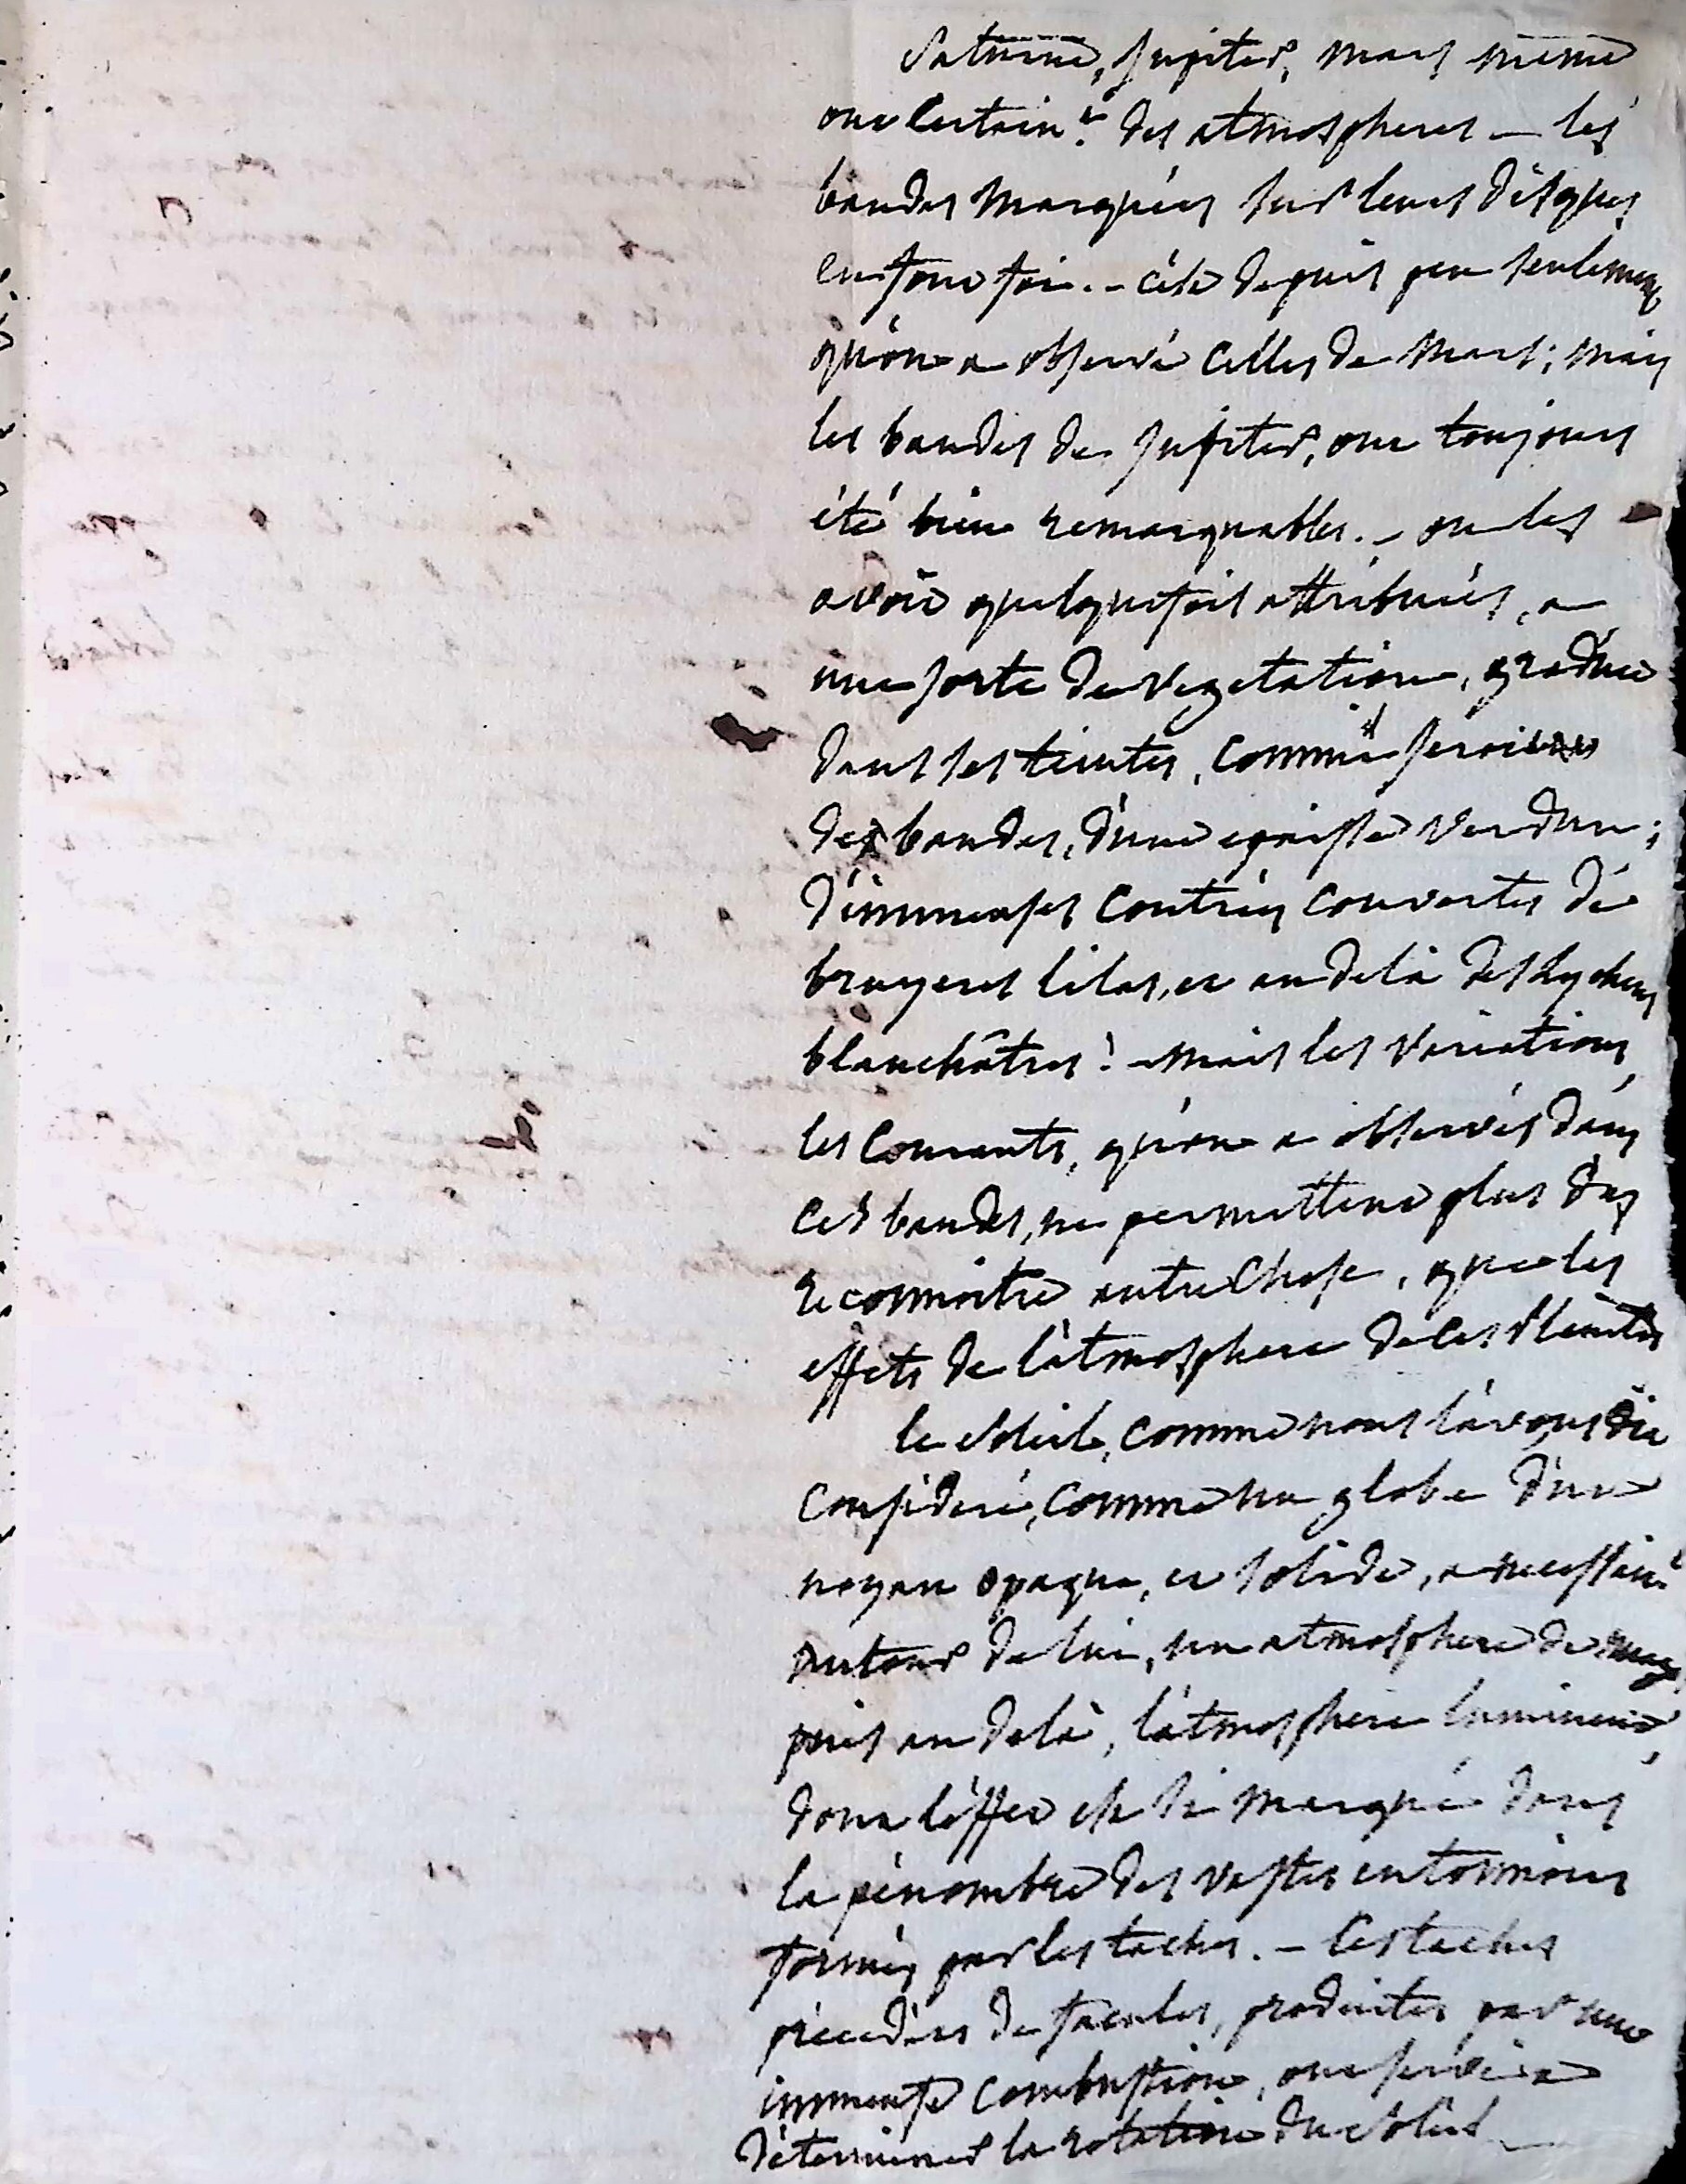 Saturne, Jupiter, Mars même
ont certain.t des atmospheres — les
bandes marquées sur leurs disques
en font foi. — c'est depuis peu seulement
qu'on a observé celles de Mars; mais
les bandes de Jupiter, ont toujours
été bien remarquables. — on les
avoit quelquefois attribuées, a
une sorte de vegetation, graduée
dans ses teintes, comme seroit
des bandes, d'une epaisse verdure;
d'immenses contrées couvertes de
bruyeres lilas, et au delà des lychens
blanchâtres! — mais les variations,
les courants, qu'on a observés dans
ces bandes, ne permettent plus d'y
reconnoitre autre chose, que les
effets de l'atmosphere de ces planetes
le soleil, comme nous l'avons dit
consideré, comme un globe d'un
noyau opaque, et solide, a necessair.t
autour de lui, un atmosphere de nuages,
puis au delà, l'atmosphere lumineuse,
dont l'effet est si marqué dans
la pénombre des vastes entonnoirs
formés par les taches. — Ces taches
précédées de facules, produites par une
immense combustion, ont servi a
déterminer la rotation du soleil —